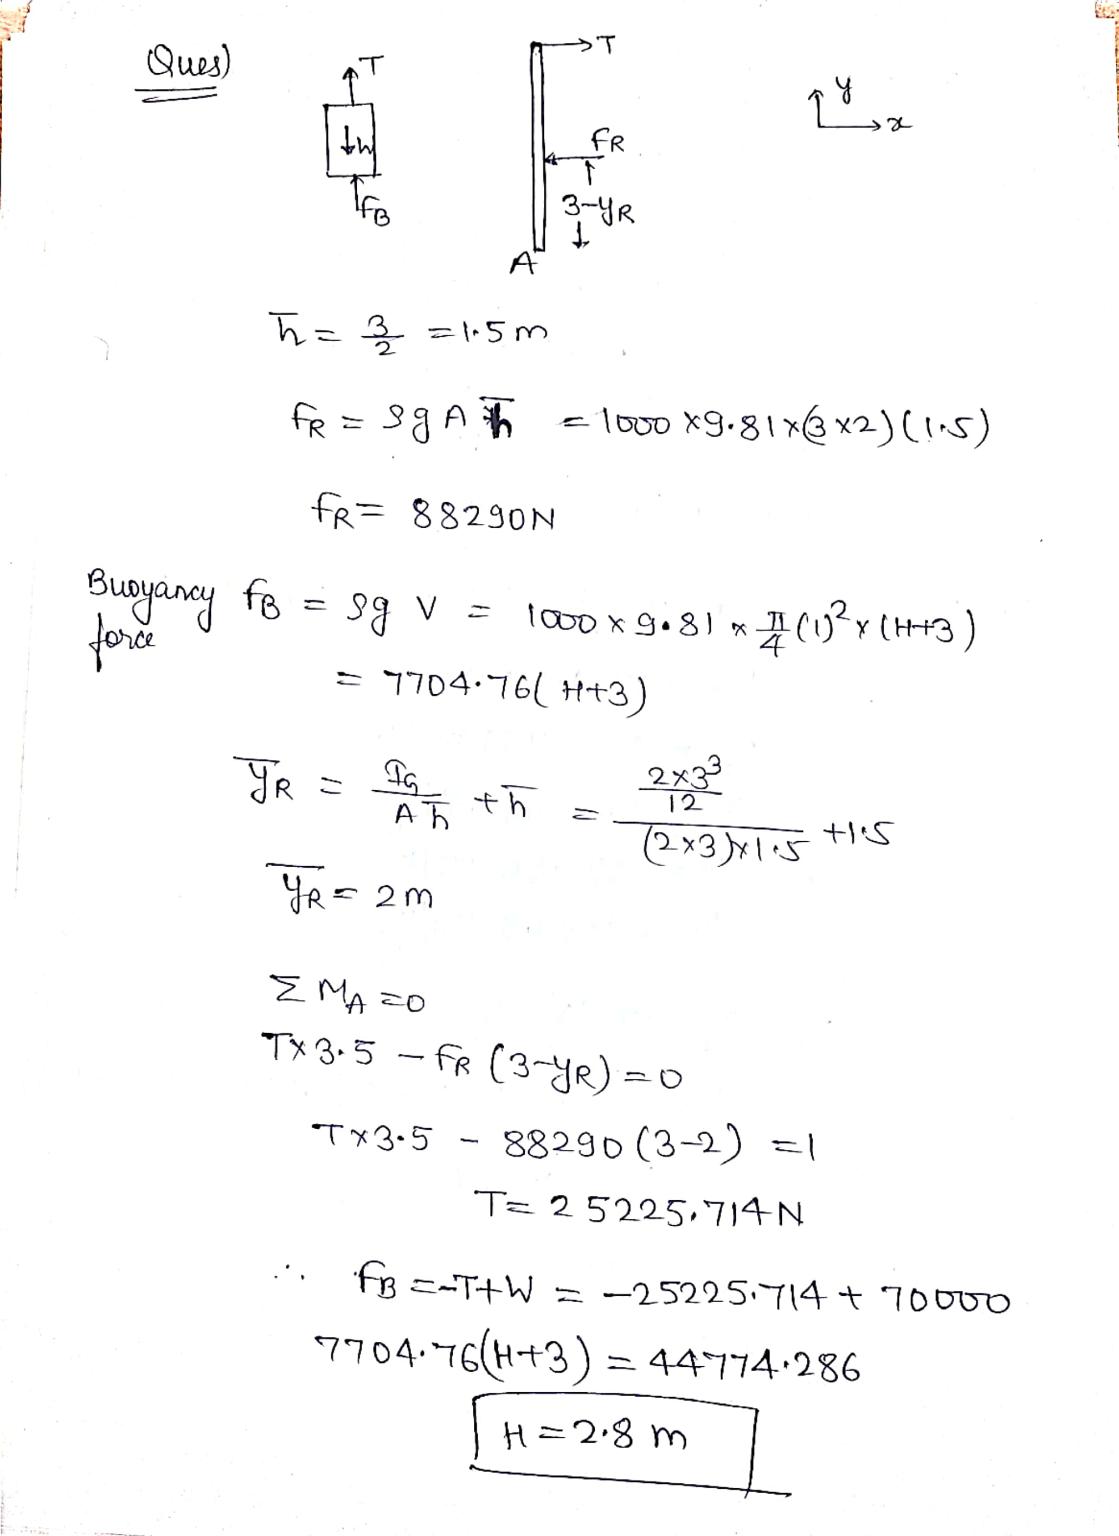 Ques)
T
↓W
FB
T
FR
3-yR
A
y
x
h̄ = 3/2 = 1.5 m
FR = ρg A h̄ = 1000 × 9.81 × (3 × 2) (1.5)
FR = 88290N
Buoyancy force FB = ρg V = 1000 × 9.81 × π/4 (1)² × (H+3)
= 7704.76( H+3)
ȳR = IG/(A h̄) + h̄ = (2×3³/12)/((2×3)×1.5) + 1.5
ȳR = 2m
Σ MA = 0
T× 3.5 - FR (3-yR) = 0
T×3.5 - 88290 (3-2) = 1
T= 25225.714N
∴ FB = -T+W = -25225.714 + 70000
7704.76(H+3) = 44774.286
H = 2.8 m